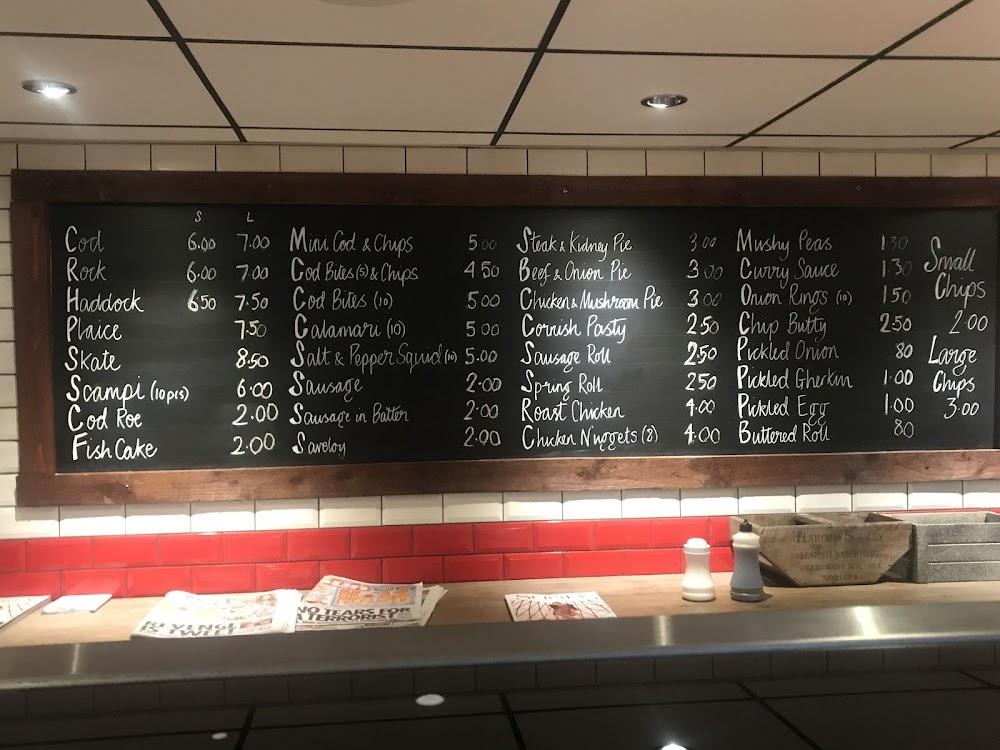 S L
Cod 6.00 7.00
Rock 6.00 7.00
Haddock 6.50 7.50
Plaice 7.50
Skate 8.50
Scampi (10pcs) 6.00
Cod Roe 2.00
Fish Cake 2.00
Mini Cod & Chips 5 00
Cod Bites (5) & Chips 4 50
Cod Bites (10) 5 00
Calamari (10) 5 00
Salt & Pepper Squid (10) 5.00
Sausage 2.00
Sausage in Batter 2.00
Saveloy 2.00
Steak & Kidney Pie 3 00
Beef & Onion Pie 3 00
Chicken & Mushroom Pie 3 00
Cornish Pasty 2.50
Sausage Roll 2.50
Spring Roll 2 50
Roast Chicken 4.00
Chicken Nuggets (8) 4.00
Mushy Peas 1.30
Curry Sauce 1.30
Onion Rings (10) 1 50
Chip Butty 2.50
Pickled Onion 80
Pickled Gherkin 1.00
Pickled Egg 1.00
Buttered Roll 80
Small
Chips
2.00
Large
Chips
3.00
HAROLD
NO TEARS FOR
A TERRORIST
IS TWEET